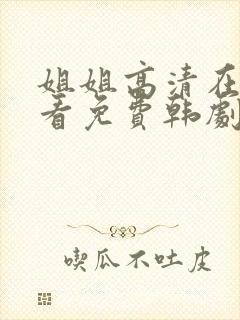 姐姐高清在
看免費韩劇
喫瓜不吐皮